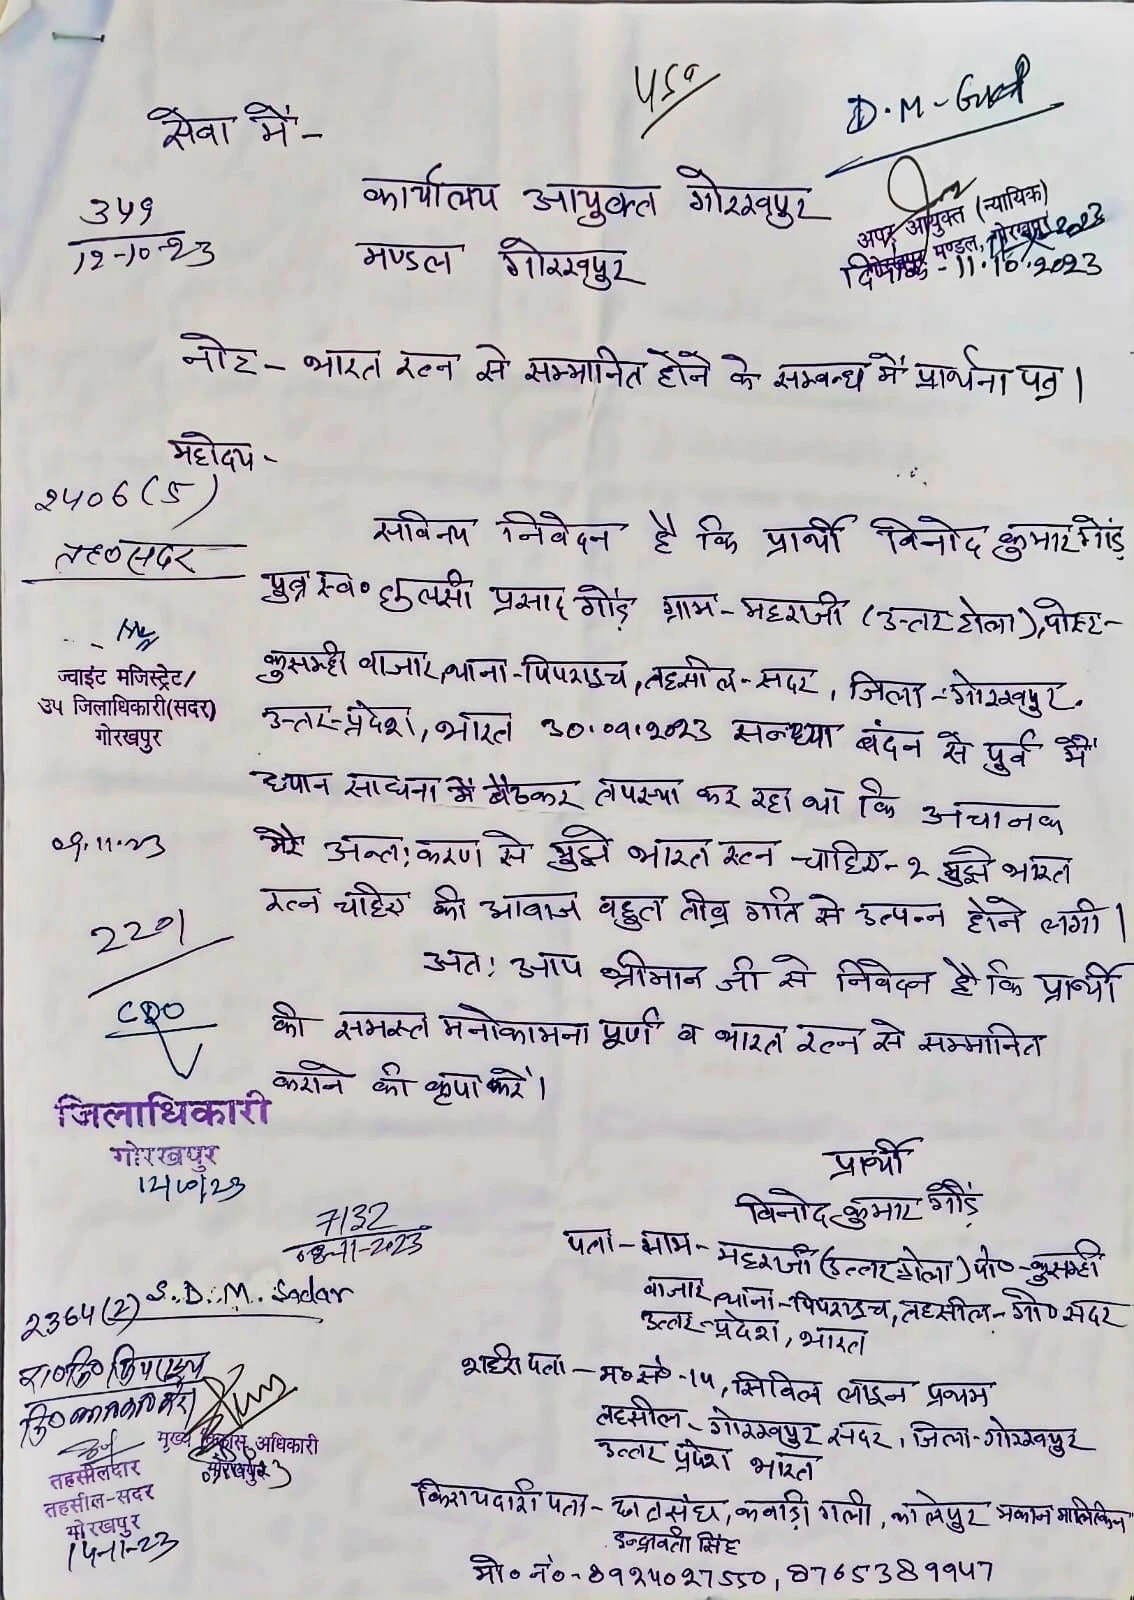 450
D.M-Gkp
सेवा में-
कार्यालय आयुक्त गोरखपुर
मण्डल गोरखपुर
359
12-10-23
अपर आयुक्त (न्यायिक)
गोरखपुर मण्डल, गोरखपुर
दिनांक-11.10.2023
नोट- भारत रत्न से सम्मानित होने के सम्बन्ध में प्रार्थना पत्र।
महोदय-
2406(5)
तह०सदर
ज्वाइंट मजिस्ट्रेट/
उप जिलाधिकारी(सदर)
गोरखपुर
सविनय निवेदन है कि प्रार्थी विनोद कुमार गोंड़
पुत्र स्व० तुलसी प्रसाद गोंड़ ग्राम-महराजी (उत्तर टोला), पोस्ट-
कुसम्ही बाजार, थाना-पिपराइच, तहसील-सदर, जिला-गोरखपुर.
उत्तर-प्रदेश, भारत 30.09.2023 सन्ध्या बंदन से पुर्व में
ध्यान साधना में बैठकर तपस्या कर रहा था कि अचानक
मेरे अन्त:करण से मुझे भारत रत्न चाहिए-2 मुझे भारत
रत्न चाहिए की आवाज बहुत तीव्र गति से उत्पन्न होने लगी।
09.11.23
2201
CDO
अत: आप श्रीमान जी से निवेदन है कि प्रार्थी
की समस्त मनोकामना पूर्ण व भारत रत्न से सम्मानित
कराने की कृपा करें।
जिलाधिकारी
गोरखपुर
12/10/23
7132
08-11-2023
2364(2) S.D.M. Sadar
रा०नि० पिपराइच
मुख्य विकास अधिकारी
गोरखपुर
तहसीलदार
तहसील-सदर
गोरखपुर
14-11-23
प्रार्थी
विनोद कुमार गोंड़
पता-ग्राम-महराजी (उत्तर टोला) पो०-कुसम्ही
बाजार, थाना-पिपराइच, तहसील-गो० सदर
उत्तर-प्रदेश, भारत
शहरी पता-म० सं०-14, सिविल लाइन प्रथम
तहसील-गोरखपुर सदर, जिला-गोरखपुर
उत्तर प्रदेश भारत
किरायदारी पता- छात्रसंघ, कबाड़ी गली, कालेपुर मकान मालिकिन
इन्द्रावती सिंह
मो० नं०-8924027550, 8765389947